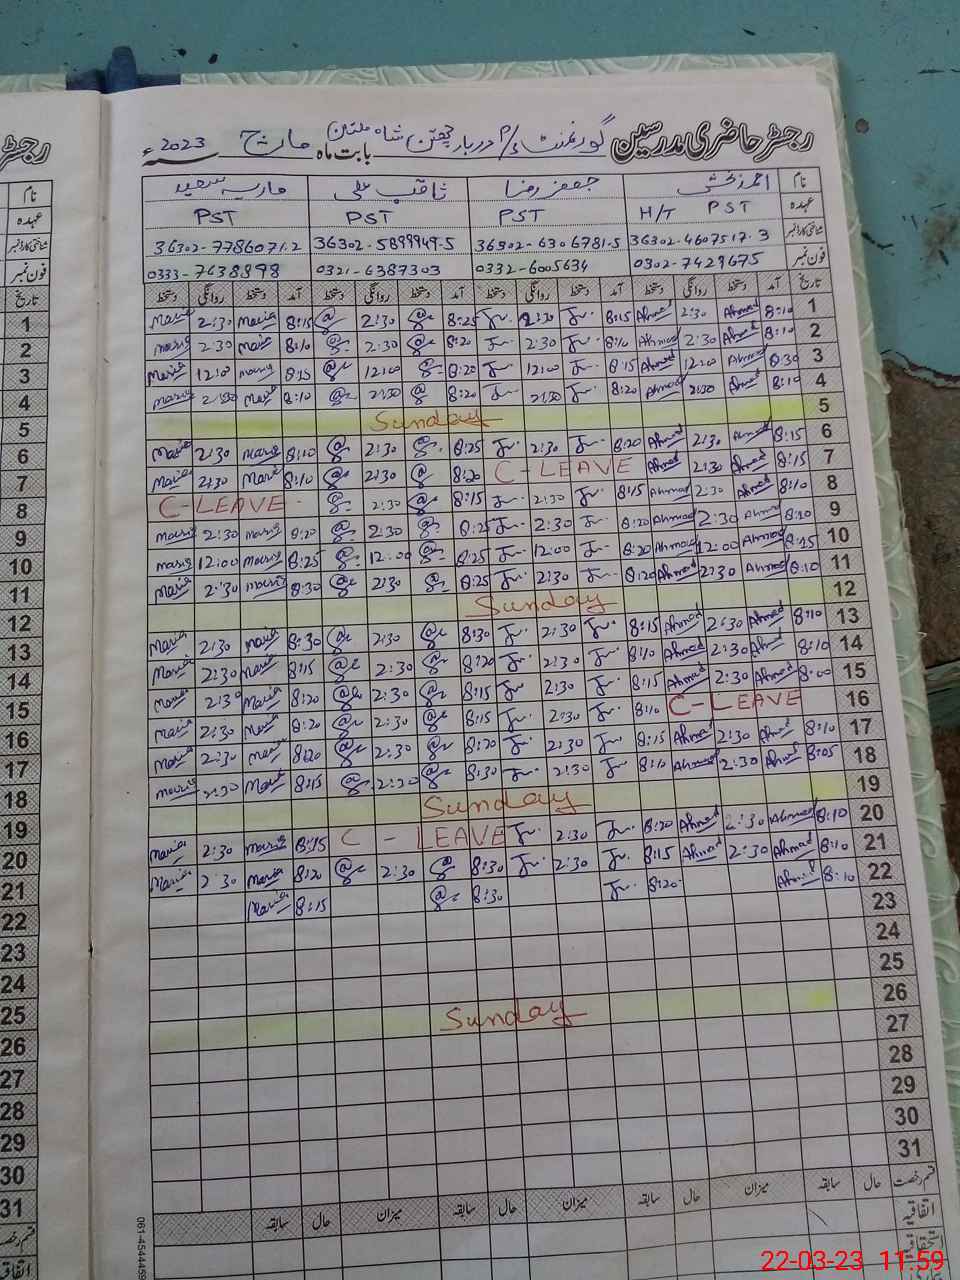 رجسٹر حاضری مدرسین گورنمنٹ دربار شاہ ملتان بابت ماہ مارچ 2023ء
نام احمد بخش جعفر رضا ثاقب علی ماریہ سعید
عہدہ H/T PST PST PST PST
شناختی کارڈ نمبر 36302-4607517.3 36302-6306781-5 36302-5899949-5 36302-7786071.2
فون نمبر 0302-7429675 0332-6005634 0321-6387303 0333-7638898
تاریخ آمد دستخط روانگی دستخط آمد دستخط روانگی دستخط آمد دستخط روانگی دستخط آمد دستخط روانگی دستخط
1 8:10 Ahmad 2:30 Ahmad 8:15 2:30 8:25 2:30 8:15 Maria 2:30 Maria
2 8:10 Ahmad 2:30 Ahmad 8:10 2:30 8:20 2:30 8:10 Maria 2:30 Maria
3 8:30 Ahmad 12:00 Ahmad 8:15 12:00 8:20 12:00 8:15 Maria 12:00 Maria
4 8:10 Ahmad 2:30 Ahmad 8:20 2:30 8:20 2:30 8:10 Maria 2:30 Maria
5 Sunday
6 8:15 Ahmad 2:30 Ahmad 8:20 2:30 8:25 2:30 8:10 Maria 2:30 Maria
7 8:15 Ahmad 2:30 Ahmad C-LEAVE 8:20 2:30 8:10 Maria 2:30 Maria
8 8:10 Ahmad 2:30 Ahmad 8:15 2:30 8:15 2:30 C-LEAVE
9 8:20 Ahmad 2:30 Ahmad 8:20 2:30 8:25 2:30 8:20 Maria 2:30 Maria
10 8:15 Ahmad 12:00 Ahmad 8:20 12:00 8:25 12:00 8:25 Maria 12:00 Maria
11 8:10 Ahmad 2:30 Ahmad 8:20 2:30 8:25 2:30 8:30 Maria 2:30 Maria
12 Sunday
13 8:10 Ahmad 2:30 Ahmad 8:15 2:30 8:30 2:30 8:30 Maria 2:30 Maria
14 8:10 Ahmad 2:30 Ahmad 8:10 2:30 8:20 2:30 8:15 Maria 2:30 Maria
15 8:00 Ahmad 2:30 Ahmad 8:15 2:30 8:15 2:30 8:20 Maria 2:30 Maria
16 C-LEAVE 8:10 2:30 8:15 2:30 8:20 Maria 2:30 Maria
17 8:10 Ahmad 2:30 Ahmad 8:15 2:30 8:20 2:30 8:20 Maria 2:30 Maria
18 8:05 Ahmad 2:30 Ahmad 8:10 2:30 8:30 2:30 8:15 Maria 2:30 Maria
19 Sunday
20 8:10 Ahmad 2:30 Ahmad 8:20 2:30 C - LEAVE 8:15 Maria 2:30 Maria
21 8:10 Ahmad 2:30 Ahmad 8:15 2:30 8:30 2:30 8:20 Maria 2:30 Maria
22 8:10 Ahmad 8:20 8:30 8:15 Maria
23
24
25
26 Sunday
27
28
29
30
31
قسم رخصت حال سابقہ میزان حال سابقہ میزان حال سابقہ میزان حال سابقہ
اتفاقیہ
استحقاقیہ
رجسٹر
نام
عہدہ
شناختی کارڈ نمبر
فون نمبر
تاریخ
1
2
3
4
5
6
7
8
9
10
11
12
13
14
15
16
17
18
19
20
21
22
23
24
25
26
27
28
29
30
31
قسم رخصت
061-4544459
22-03-23 11:59